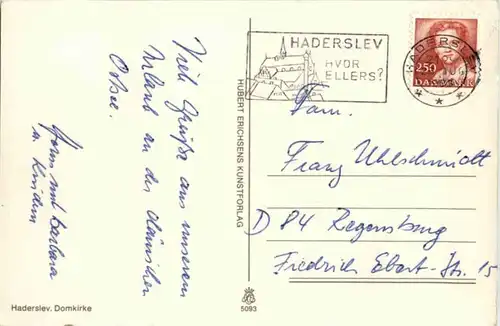 Viele Grüße aus unserem
Urlaub an der dänischen
Ostsee.
und Barbara
u. Kinder
Haderslev. Domkirke
HUBERT ERICHSENS KUNSTFORLAG
5093
HADERSLEV
HVOR
ELLERS?
HADERSLEV
250
DANMARK
Fam.
Franz Uhlschmidt
D 84 Regensburg
Friedrich Ebert-Str. 15